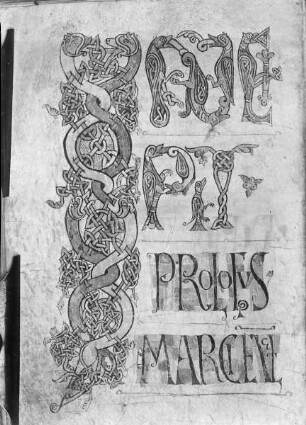 INCE
PIT
PROLOGVS
MARCI